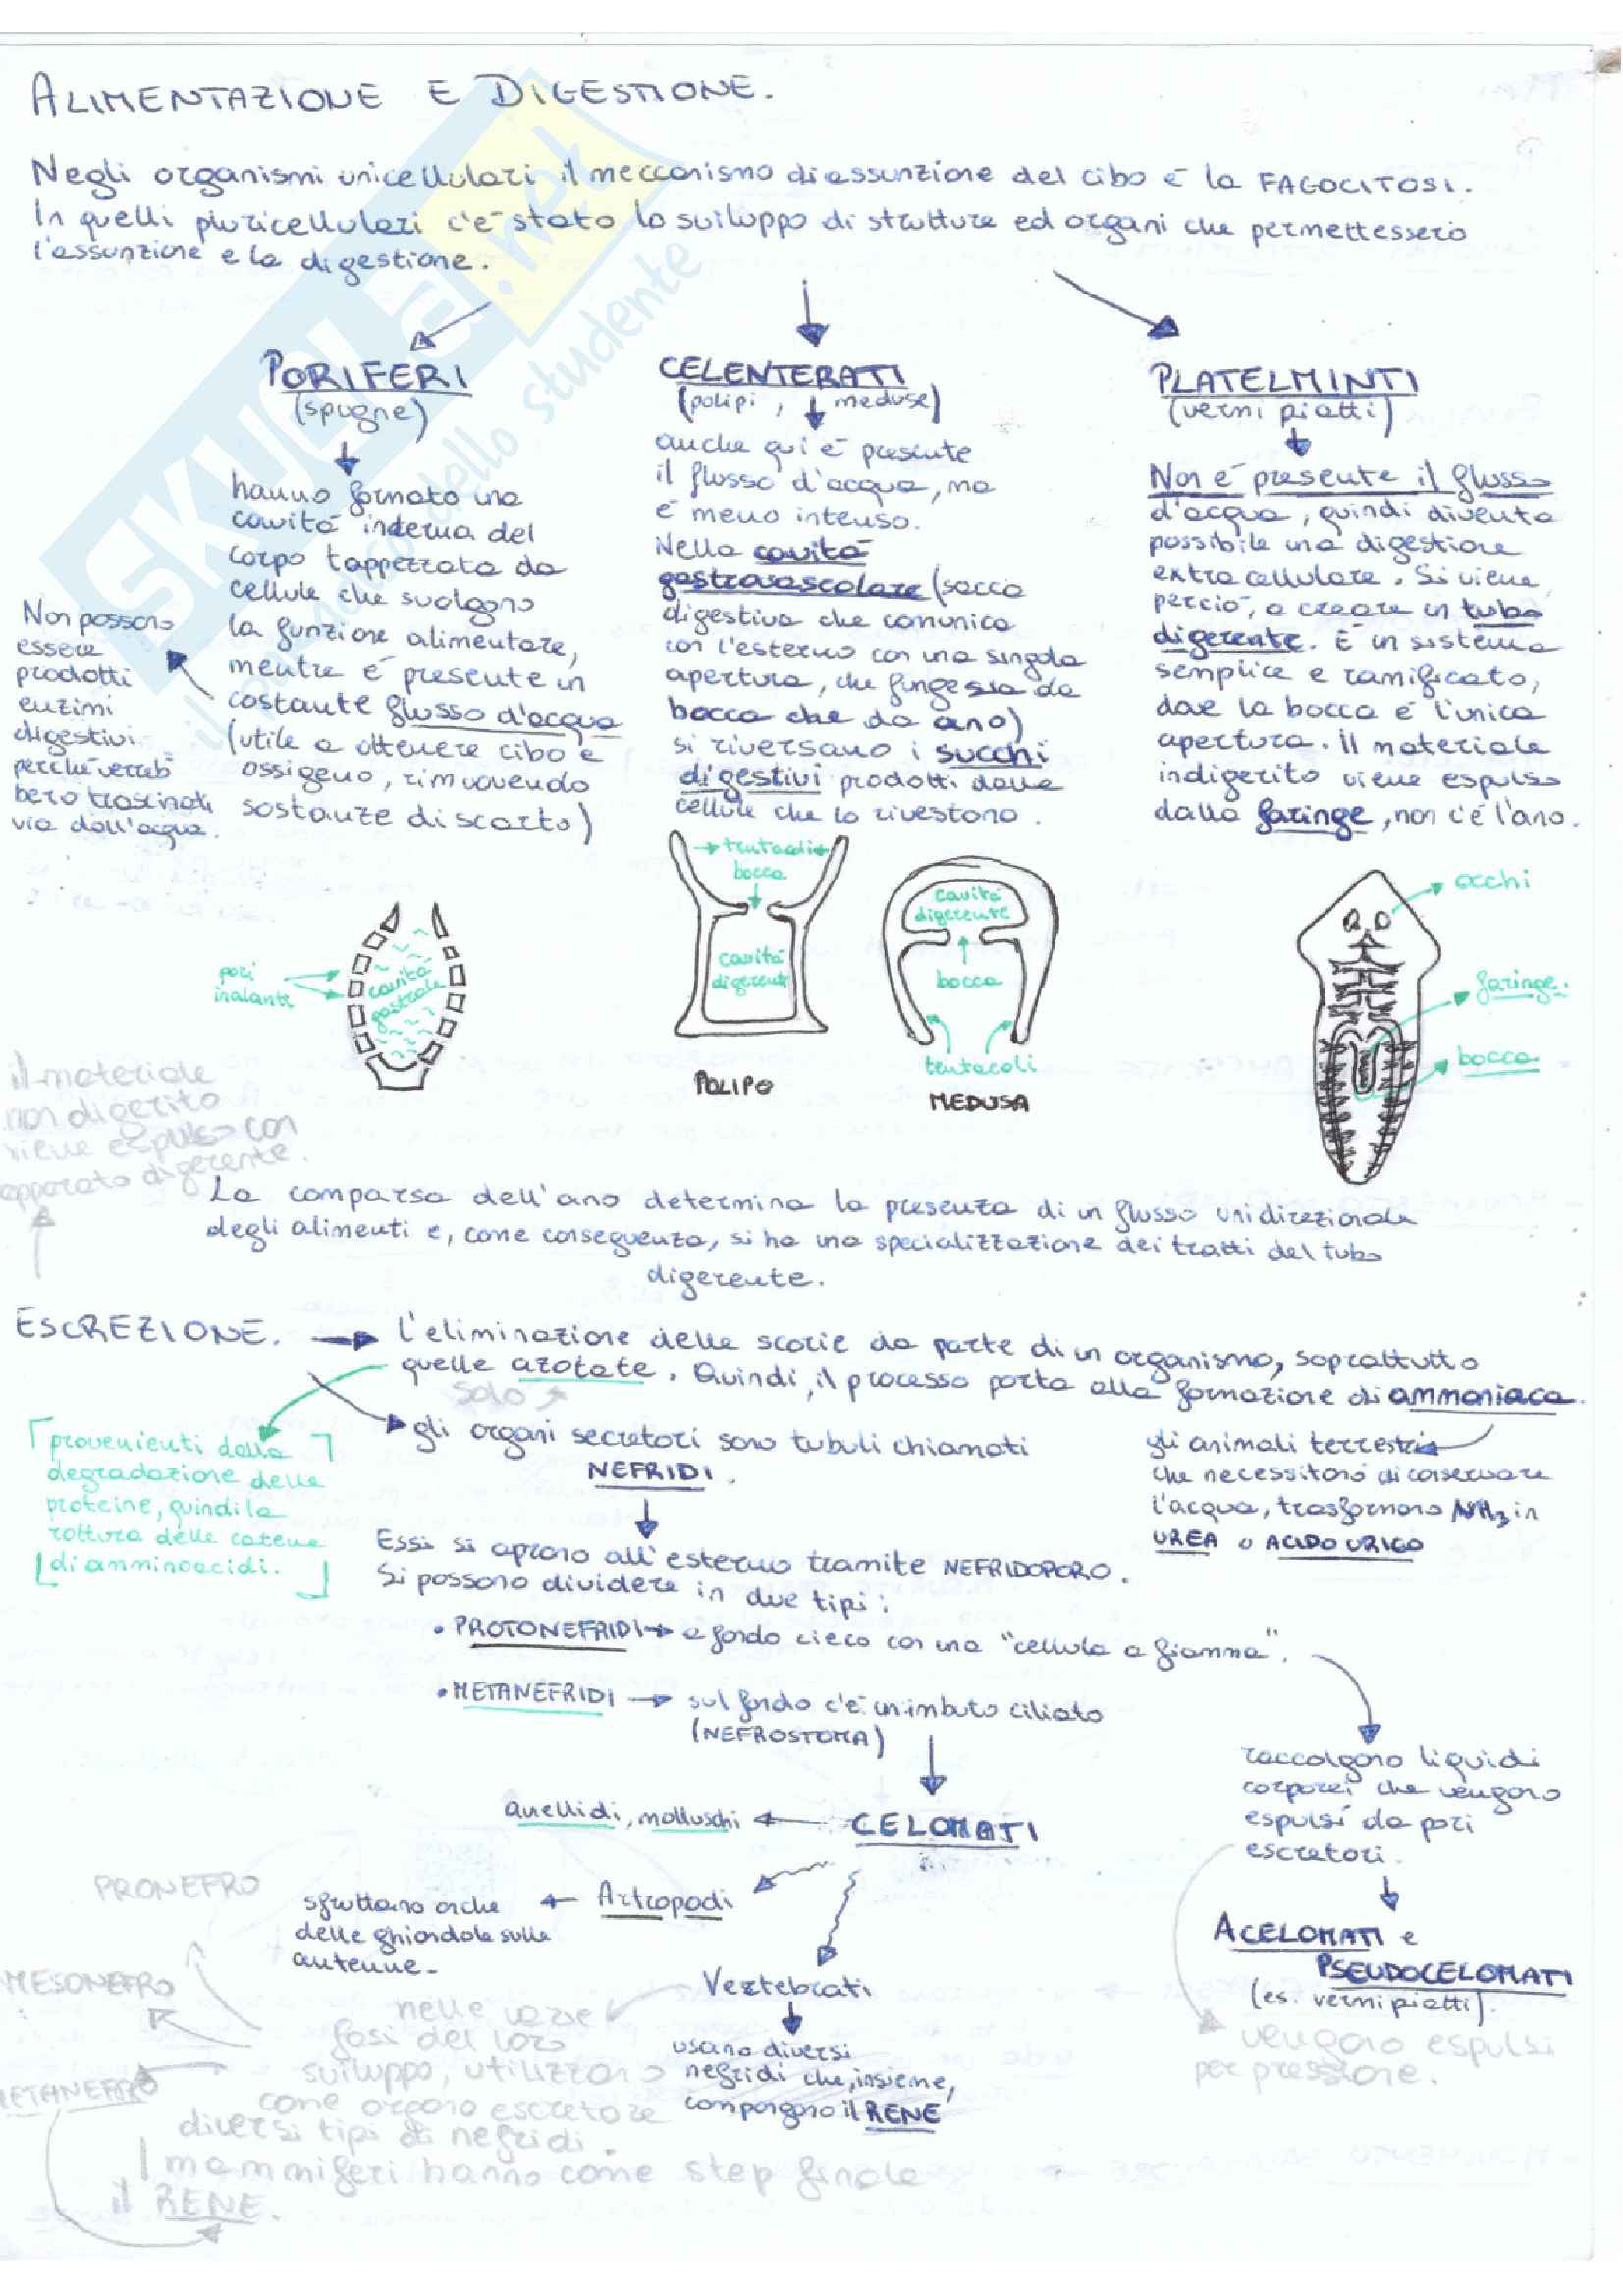 ALIMENTAZIONE E DIGESTIONE.
Negli organismi unicellulari il meccanismo di assunzione del cibo è la FAGOCITOSI.
In quelli pluricellulari c'è stato lo sviluppo di strutture ed organi che permettessero
l'assunzione e la digestione.
PORIFERI
(spugne)
hanno formato una
cavità interna del
corpo tappezzata da
cellule che svolgono
la funzione alimentare,
mentre è presente un
costante flusso d'acqua
(utile a ottenere cibo e
ossigeno, rimuovendo
sostanze di scarto)
Non possono
essere
prodotti
enzimi
digestivi
perché verreb
bero trascinati
via dall'acqua.
CELENTERATI
(polipi, meduse)
anche qui è presente
il flusso d'acqua, ma
è meno intenso.
Nella cavità
gastrovascolare (sacca
digestiva che comunica
con l'esterno con una singola
apertura, che funge sia da
bocca che da ano)
si riversano i succhi
digestivi prodotti dalle
cellule che lo rivestono.
PLATELMINTI
(vermi piatti)
Non è presente il flusso
d'acqua, quindi diventa
possibile una digestione
extracellulare. Si viene
perciò, a creare un tubo
digerente. È un sistema
semplice e ramificato,
dove la bocca è l'unica
apertura. Il materiale
indigerito viene espulso
dalla faringe, non c'è l'ano.
pori
inalante
cavità
gastrale
tentacoli
bocca
cavità
digerente
POLIPO
cavità
digerente
bocca
tentacoli
MEDUSA
occhi
faringe.
bocca
il materiale
non digerito
viene espulso con
apparato digerente.
La comparsa dell'ano determina la presenza di un flusso unidirezionale
degli alimenti e, come conseguenza, si ha una specializzazione dei tratti del tubo
digerente.
ESCREZIONE.
L'eliminazione delle scorie da parte di un organismo, soprattutto
quelle azotate. Quindi, il processo porta alla formazione di ammoniaca.
solo
provenienti dalla
degradazione delle
proteine, quindi la
rottura delle catene
di amminoacidi.
gli organi secretori sono tubuli chiamati
NEFRIDI.
gli animali terrestri
che necessitano di conservare
l'acqua, trasformano NH3 in
UREA o ACIDO URICO
Essi si aprono all'esterno tramite NEFRIDOPORO.
Si possono dividere in due tipi:
• PROTONEFRIDI → a fondo cieco con una "cellula a fiamma".
• METANEFRIDI → sul fondo c'è un imbuto ciliato
(NEFROSTOMA)
raccolgono liquidi
corporei che vengono
espulsi da pori
escretori.
anellidi, molluschi ← CELOMATI
PRONEFRO
sfruttano anche ← Artropodi
delle ghiandole sulle
antenne.
ACELOMATI e
PSEUDOCELOMATI
(es. vermi piatti).
vengono espulsi
per pressione.
MESONEFRO
METANEFRO
Vertebrati
usano diversi
nefridi che, insieme,
compongono il RENE
nelle varie
fasi del loro
sviluppo, utilizzano
come organo escretore
diversi tipi di nefridi.
I mammiferi hanno come step finale
il RENE.
SKUOLA.net
il nemico dello studente